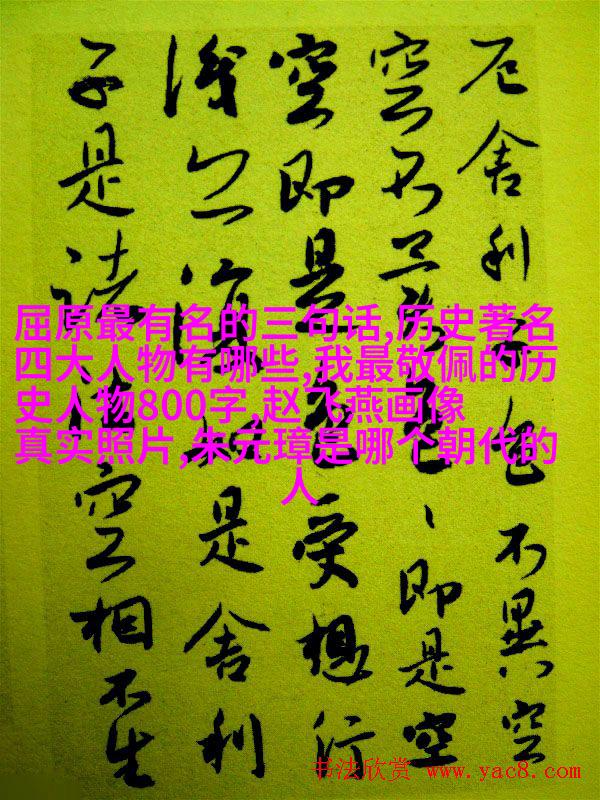 厄舍利子色不異空
空不異色、即是空
空即是色受想行
識亦復如是舍利
子是諸法空相不生
屈原最有名的三句话,历史著名
四大人物有哪些,我最敬佩的历
史人物800字,赵飞燕画像
真实照片,朱元璋是哪个朝代的
人
书法欣赏 www.yac8.com